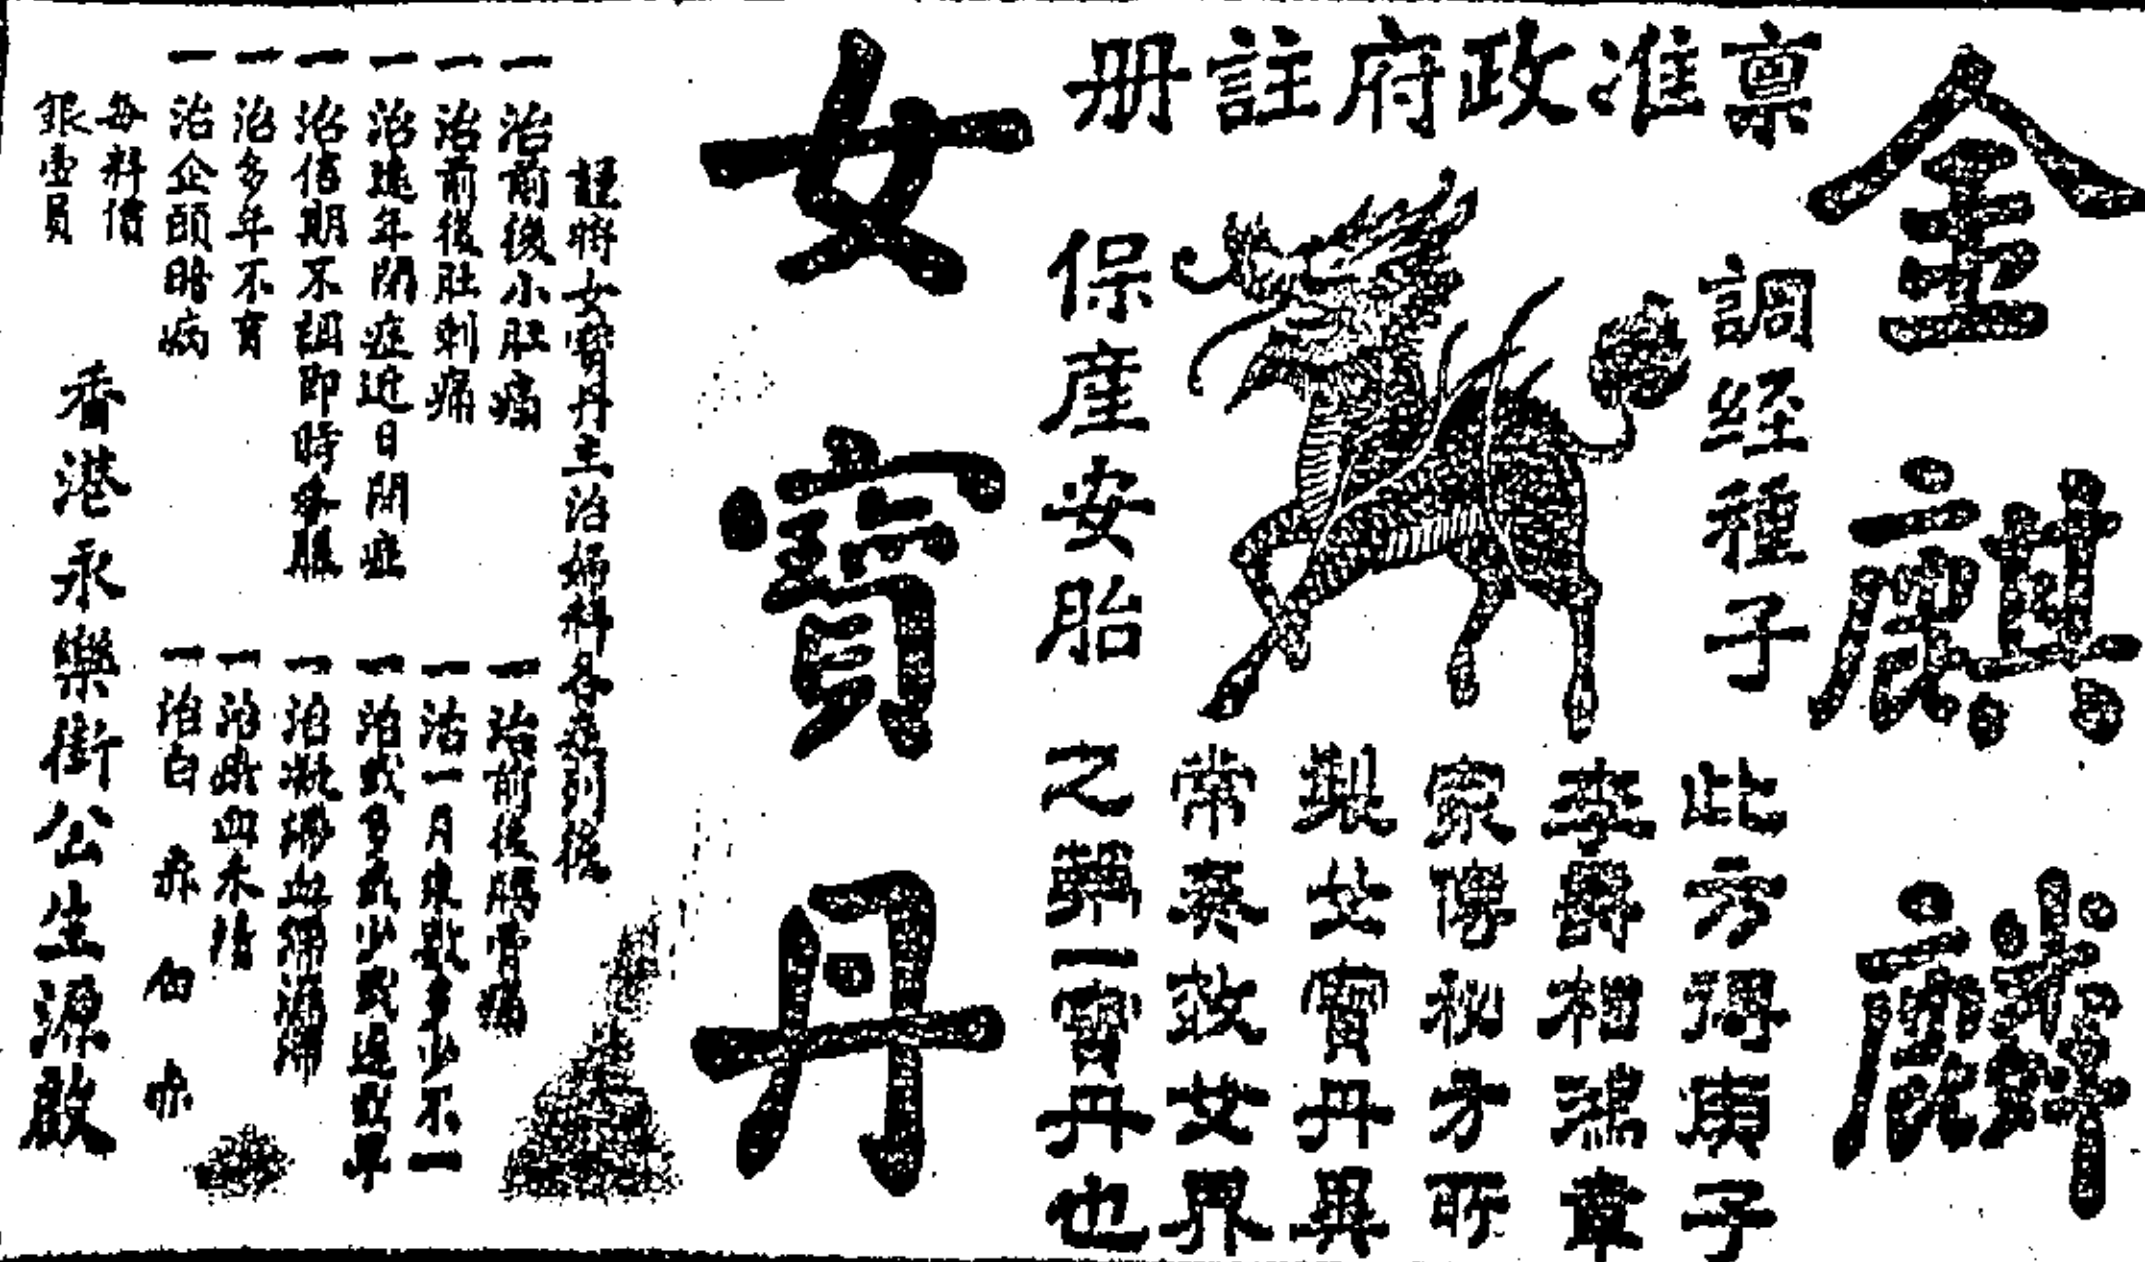 金麒麟
稟准政府註册
調經種子
保產安胎
此方得庚子
李爵相鴻章
家傳秘方所
製女寶丹異
常奏效女界
之第一寶丹也
女寶丹
謹將女寶丹主治婦科各症列後
一治前後小肚痛
一治前後肚刺痛
一治遠年閉症近日閉症
一治信期不調即時多服
一治多年不育
一治企頭暗病
一治前後腸骨痛
一治一月來數多少不一
一治或多或少或遲或早
一治凝瘀血
一治血
一治白
每料價
銀壹員
香港永樂街公生源啟